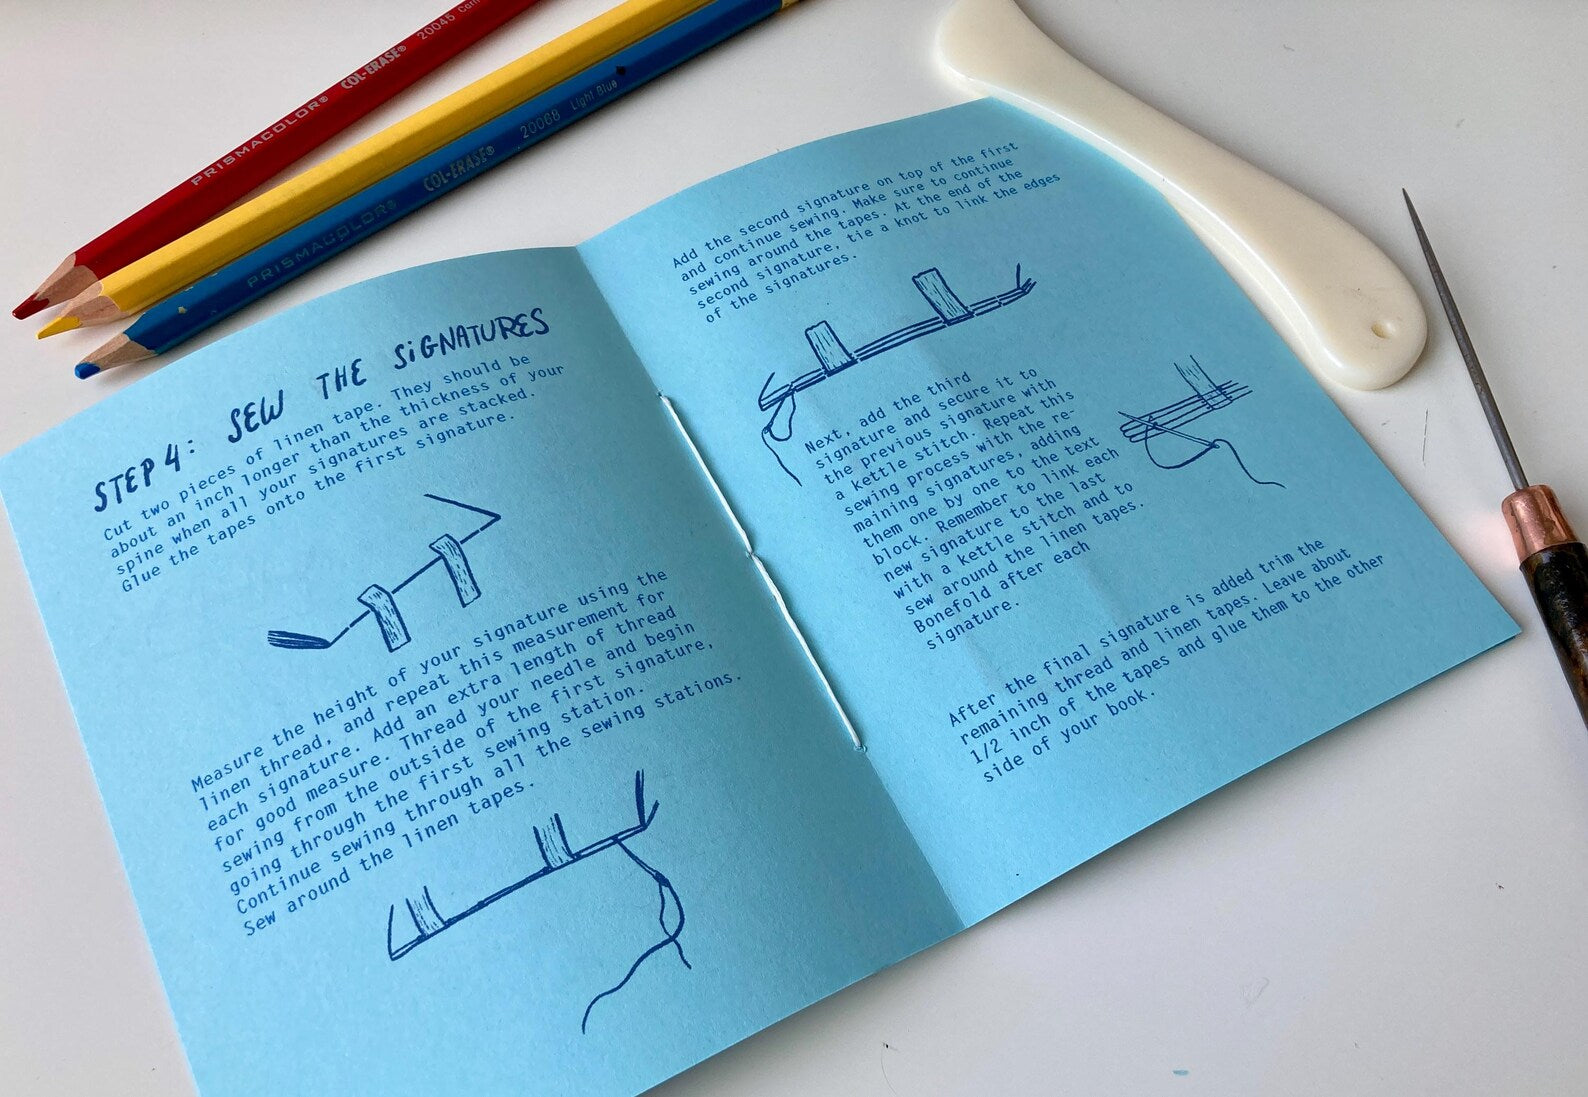 PRISMACOLOR® COL-ERASE® 20045
PRISMACOLOR® COL-ERASE® 20068 Light Blue
STEP 4: SEW THE SiGNATURES
Cut two pieces of linen tape. They should be
about an inch longer than the thickness of your
spine when all your signatures are stacked.
Glue the tapes onto the first signature.
Measure the height of your signature using the
linen thread, and repeat this measurement for
each signature. Add an extra length of thread
for good measure. Thread your needle and begin
sewing from the outside of the first signature,
going through the first sewing station.
Continue sewing through all the sewing stations.
Sew around the linen tapes.
Add the second signature on top of the first
and continue sewing. Make sure to continue
sewing around the tapes. At the end of the
second signature, tie a knot to link the edges
of the signatures.
Next, add the third
signature and secure it to
the previous signature with
a kettle stitch. Repeat this
sewing process with the re-
maining signatures, adding
them one by one to the text
block. Remember to link each
new signature to the last
with a kettle stitch and to
sew around the linen tapes.
Bonefold after each
signature.
After the final signature is added trim the
remaining thread and linen tapes. Leave about
1/2 inch of the tapes and glue them to the other
side of your book.